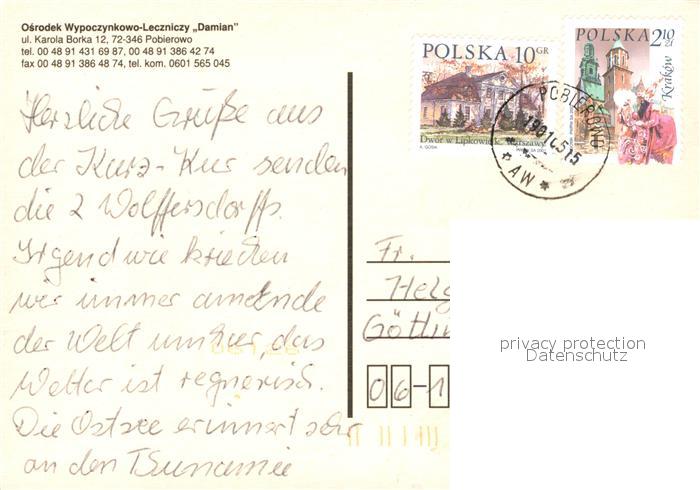 Ośrodek Wypoczynkowo-Leczniczy „Damian"
ul. Karola Borka 12, 72-346 Pobierowo
tel. 00 48 91 431 69 87, 00 48 91 386 42 74
fax 00 48 91 386 48 74, tel. kom. 0601 565 045
POLSKA 10 GR
Dwór w Lipkowie k. Warszawy
POLSKA 2,10 zł
Kraków
POBIEROWO
AW
Herzliche Grüße aus
der Kurz-Kur senden
die 2 Wolffersdorffs.
Irgendwie kriechen
wir immer am Ende
der Welt umher, das
Wetter ist regnerisch.
Die Ostsee erinnert sehr
an den Tsunamie
Fr.
Helg
Götti
06-1
privacy protection
Datenschutz